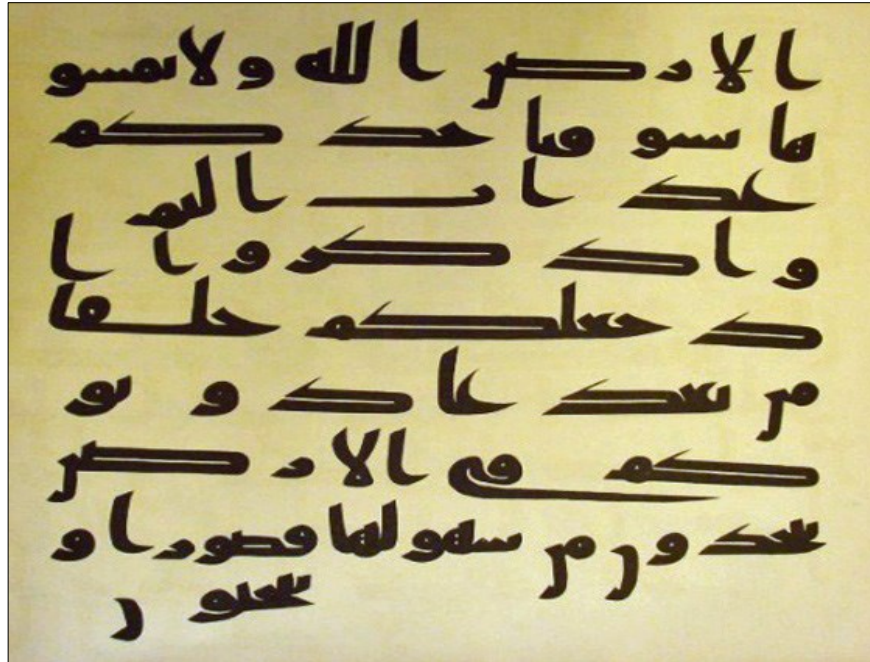 الارض الله ولا تمسو
ها بسو فياخذكم
عذاب اليم
واذكروا ا
ذ جعلكم خلفا
من بعد عاد وبو
كم في الارض
تتخذون من سهولها قصورا و
تنحتون